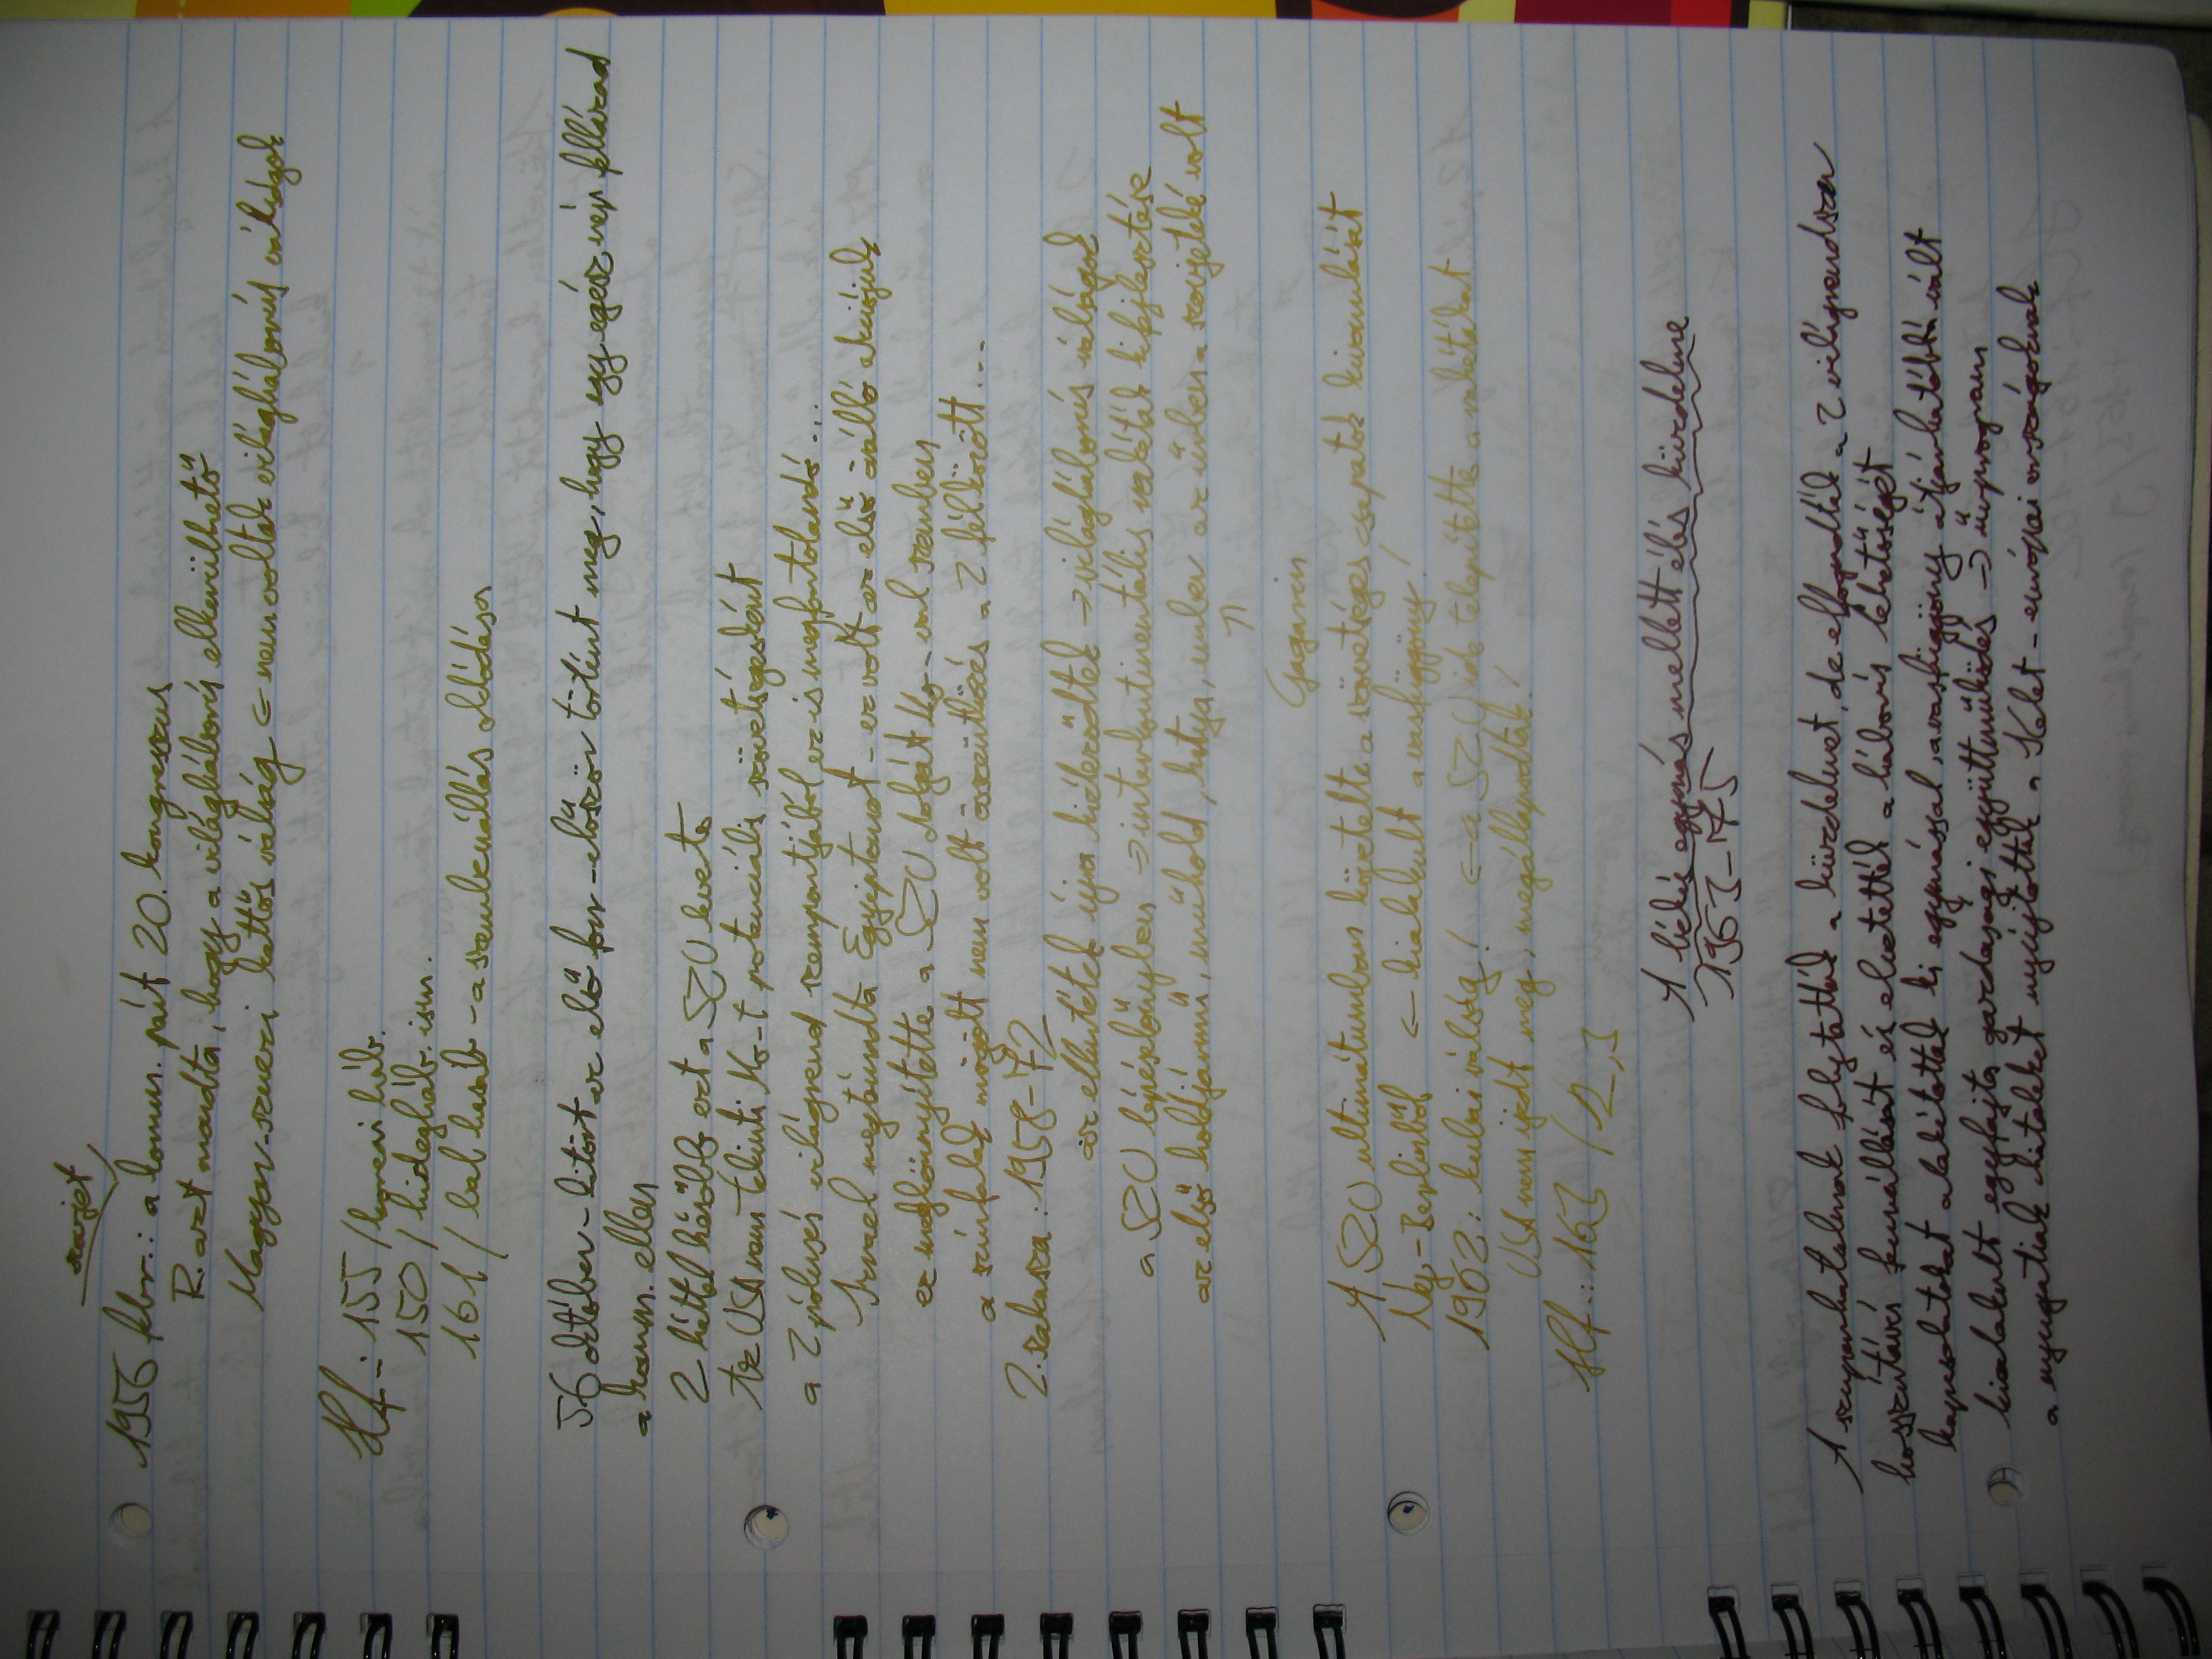 szovjet
1956 febr.: a komm. párt 20. kongresszus
R. azt mondta, hogy a világháború elkerülhető
Magyar-szuezi kettős válság <= nem voltak világháborús válságok
Hf.: 155/koreai háb.
150/hidegháb. ism.
161/bal hasáb - a szembenállás oldódása
56 október - kitört az első forr - először történt meg, hogy egy egész nép fellázad
a komm. ellen
2 héttel később ezt a SZU leverte
Az USA nem tekinti Mo-t potenciális szövetségesként
a 2 pólusú világrend szempontjából ez is megfontolandó...
Izrael megtámadta Egyiptomot - ez volt az első önálló akciójuk
ez megkönnyítette a SZU dolgát Mo-val szemben
a színfalak mögött nem volt összetűzés a 2 fél között...
2. szakasza: 1958-72
az ellentétek újra kiéleződtek -> világháborús válságok
a SZU lépéselőnyben => interkontinentális rakéták kifejlesztése
az első holdjármű, műhold, kutya, ember az űrben a szovjeteké volt
Gagarin
A SZU ultimátumban követelte a szövetséges csapatok kivonulását
Ny.-Berlinből <- kialakult a vasfüggöny!
1962: kubai válság! <- a SZU ide telepítette a rakétákat
USA nem ijedt meg, megállapodtak!
Hf.: 163/2,3
A békés egymás mellett élés küzdelme
1963-75
A szuperhatalmak folytatták a küzdelmet, de elfogadták a 2 világrendszer
hosszútávú fennállását és elvetették a háború lehetőségét
kapcsolatokat alakítottak ki egymással, a vasfüggöny átjárhatóbbá vált
kialakult egyfajta gazdasági együttműködés -> űrprogram
a nyugatiak hiteleket nyújtottak a Kelet-európai országoknak